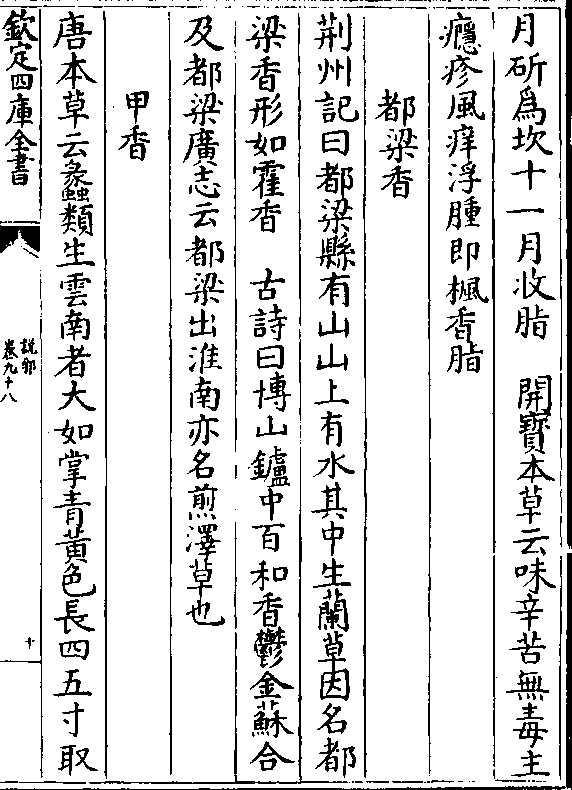 月斫爲坎十一月收脂　開寶本草云味辛苦無毒主
癮疹風痒浮腫即楓香脂
都梁香
荆州記曰都梁縣有山山上有水其中生蘭草因名都
梁香形如霍香　古詩曰博山鑪中百和香鬱金蘇合
及都梁廣志云都梁出淮南亦名煎澤草也
甲香
唐本草云蠡類生雲南者大如掌青黃色長四五寸取
欽定四庫全書
說郛
卷九十八
十